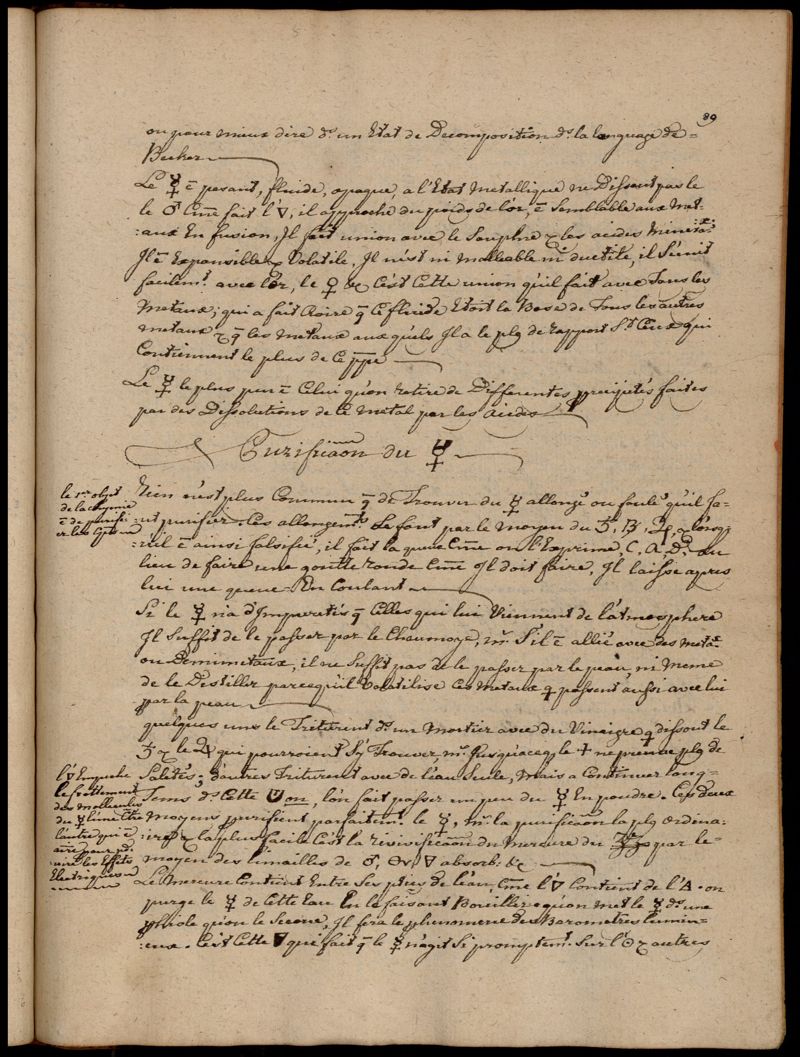 89
ou pour mieux dire ds. un Etat de Decomposition ds. la language de=
Becher
Le ☿ ē pesant, fluide, opaque, a l'Etat metallique ne Dissout pas le
le ♂ Cm̄e fait l'▽, il approche du poids de l'or, ē Semblable aux Met-
:aux En fusion, Il fait union avec le Souphre & les acides Minera:
Il ē Expansible & Volatile, Il n'est ni malleable ni ductile, il S'unit
facilemt. avec l'or, le ♀ &c C'est Cette union qu'il fait avec Tous les
Metaux; qui a fait Croire q̄ Ce fluide Etoit la Base de Tous les autres
metaux & q̄ les Metaux auxquels Il a le plg de rapport St. Ceux qui
Contiennent le plus de Ce pp̄e
Le ☿ le plus pur ē Celui qu'on retire de Differentes precipités faites
par des Dissolutions de Ce Metal par les acides
Purificãon du ☿
le 1er. objet
de la chymie
ē de purifi-
er les Corps
Rien n'est plus Commun q̄ de Trouver du ☿ allongé ou foulé qu'il fa-
:ut purifier. Ces allongemts. Se font par le moyen du ♄, B, ♃, & lorsq-
:u'il ē ainsi falsifié, il fait la queue Cm̄e on l'Exprime C. A. D. au
lieu de faire une goutte ronde Cm̄e Il doit faire, Il laisse apres
lui une queue En Coulant
Si le ☿ n'a d'Impuretés q̄ Celles qui lui Viennent de l'atmosphere
Il Suffit de le passer par le Chamoye, m. S'il ē allié avec des metx.
ou Demimetaux, il ne Suffit pas de le passer par le peau, ni Meme
de le Distiller parcequ'il Volatilise Ces Metaux q̄ passent aussi avec lui
par la peau
quelques uns le Triturent ds. un Mortier avec du Vinaigre q̄ dissout le
♄ & le ♃ qui pourroient S'y Trouver m. Jusqu'a ceq̄ le + ne prenne plg de
Saletés; d'autres Triturent avec de l'eau Seule, Mais a Continuer long-
Tems ds. Cette on, l'on fait passer un peu du ☿ En poudre. Ces deux
moyens purifient parfaitemt. le ☿, m. la purificãon la plg ordina:
:ire & la plus facile C'est la revivificãon du Mercure du par le-
moyen des limailles de ♂, ou ▽ absorb. &c
l'▽ Empeche
le frottement
des mollecules
du ☿ l'une Cntre
l'autre qui ē
Le Mercure Contient Entre Ses ptes. de l'eau, Cm̄e l'▽ Contient de l'△. on
purge le ☿ de Cette Eau En le faisant Bouillir & quan Met le ☿ ds. une
phiole qu'on le Secoue, Il fera le phenomene des Barometres lumin-
:eux. C'est Cette ▽ qui fait q̄ le ☿ n'agit Si promptemt. Sur l'☉ & autres